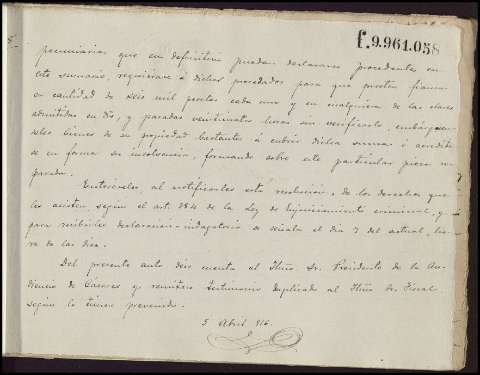 f. 9.961.058
pecuniarias que en definitiva puedan declararse procedentes en
este sumario, requiérase á dichos procesados para que presten fianza
en cantidad de seis mil pesetas cada uno y en cualquiera de las clases
admitidas en dro, y pasadas veinticuatro horas sin verificarlo, embárguen-
seles bienes de su propiedad bastantes á cubrir dicha suma ó acredite-
se en forma su insolvencia, formando sobre este particular pieza se-
parada.
Entéreseles, al notificarles esta resolución, de los derechos que
les asisten según el art. 384 de la Ley de Enjuiciamiento criminal, y
para recibirles declaración indagatoria se señala el día 7 del actual, ho-
ra de las diez.
Del presente auto dése cuenta al Iltmo. Sr. Presidente de la Au-
diencia de Cáceres y remítase testimonio duplicado al Iltmo Sr. Fiscal
según lo tienen prevenido.
5 Abril 916.